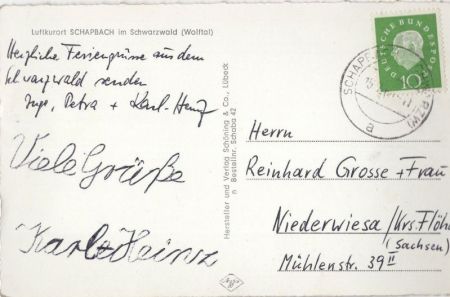 Luftkurort SCHAPBACH im Schwarzwald (Wolftal)
Herzliche Feriengrüsse aus dem
Schwarzwald senden
Inge, Petra + Karl-Heinz
Viele Grüße
Karl-Heinz
Hersteller und Verlag Schöning & Co., Lübeck
n Bestellnr. Schaba 42
DEUTSCHE BUNDESPOST
10
SCHAPBACH
a
Herrn
Reinhard Grosse + Frau
Niederwiesa / Krs. Flöha
(Sachsen)
Mühlenstr. 39 II